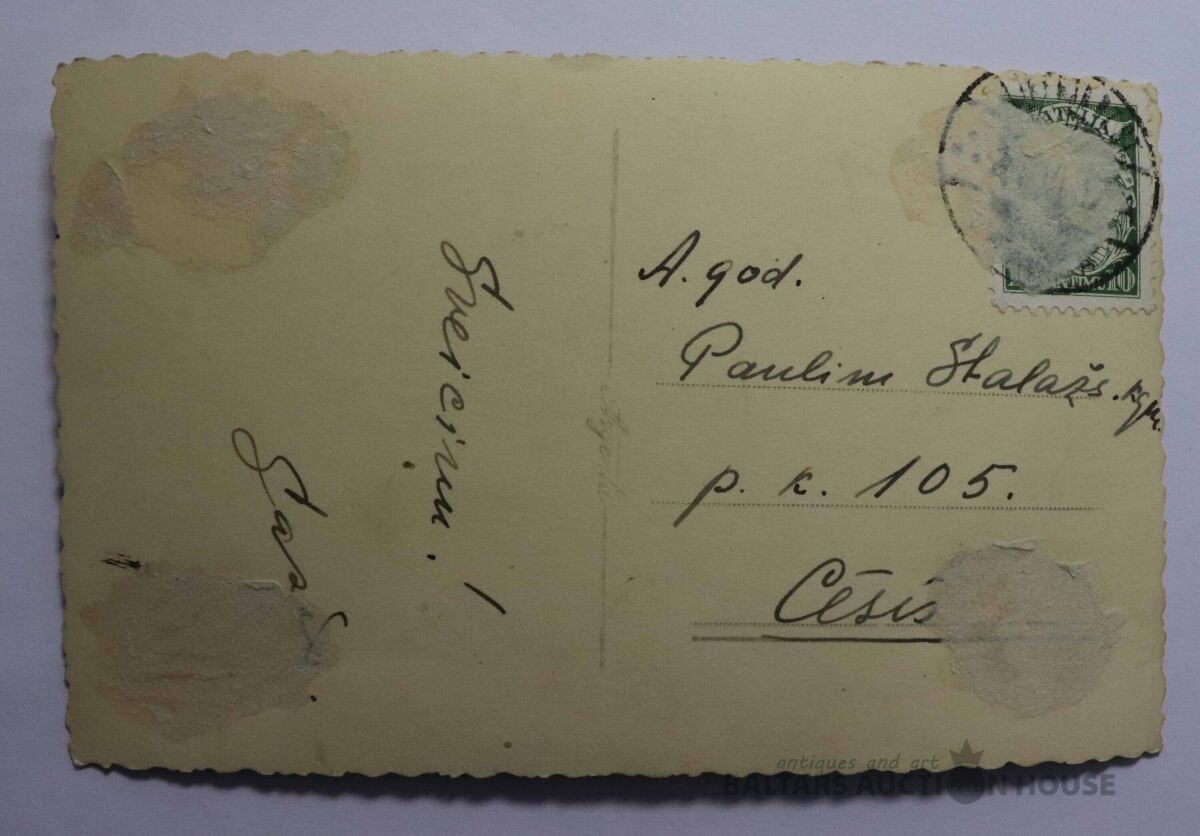 Sveicinu!
A. god.
Paulim Stalažs. kgm.
p. k. 105.
Cēsīs
10
antiques and art
BALTARS AUCTION HOUSE